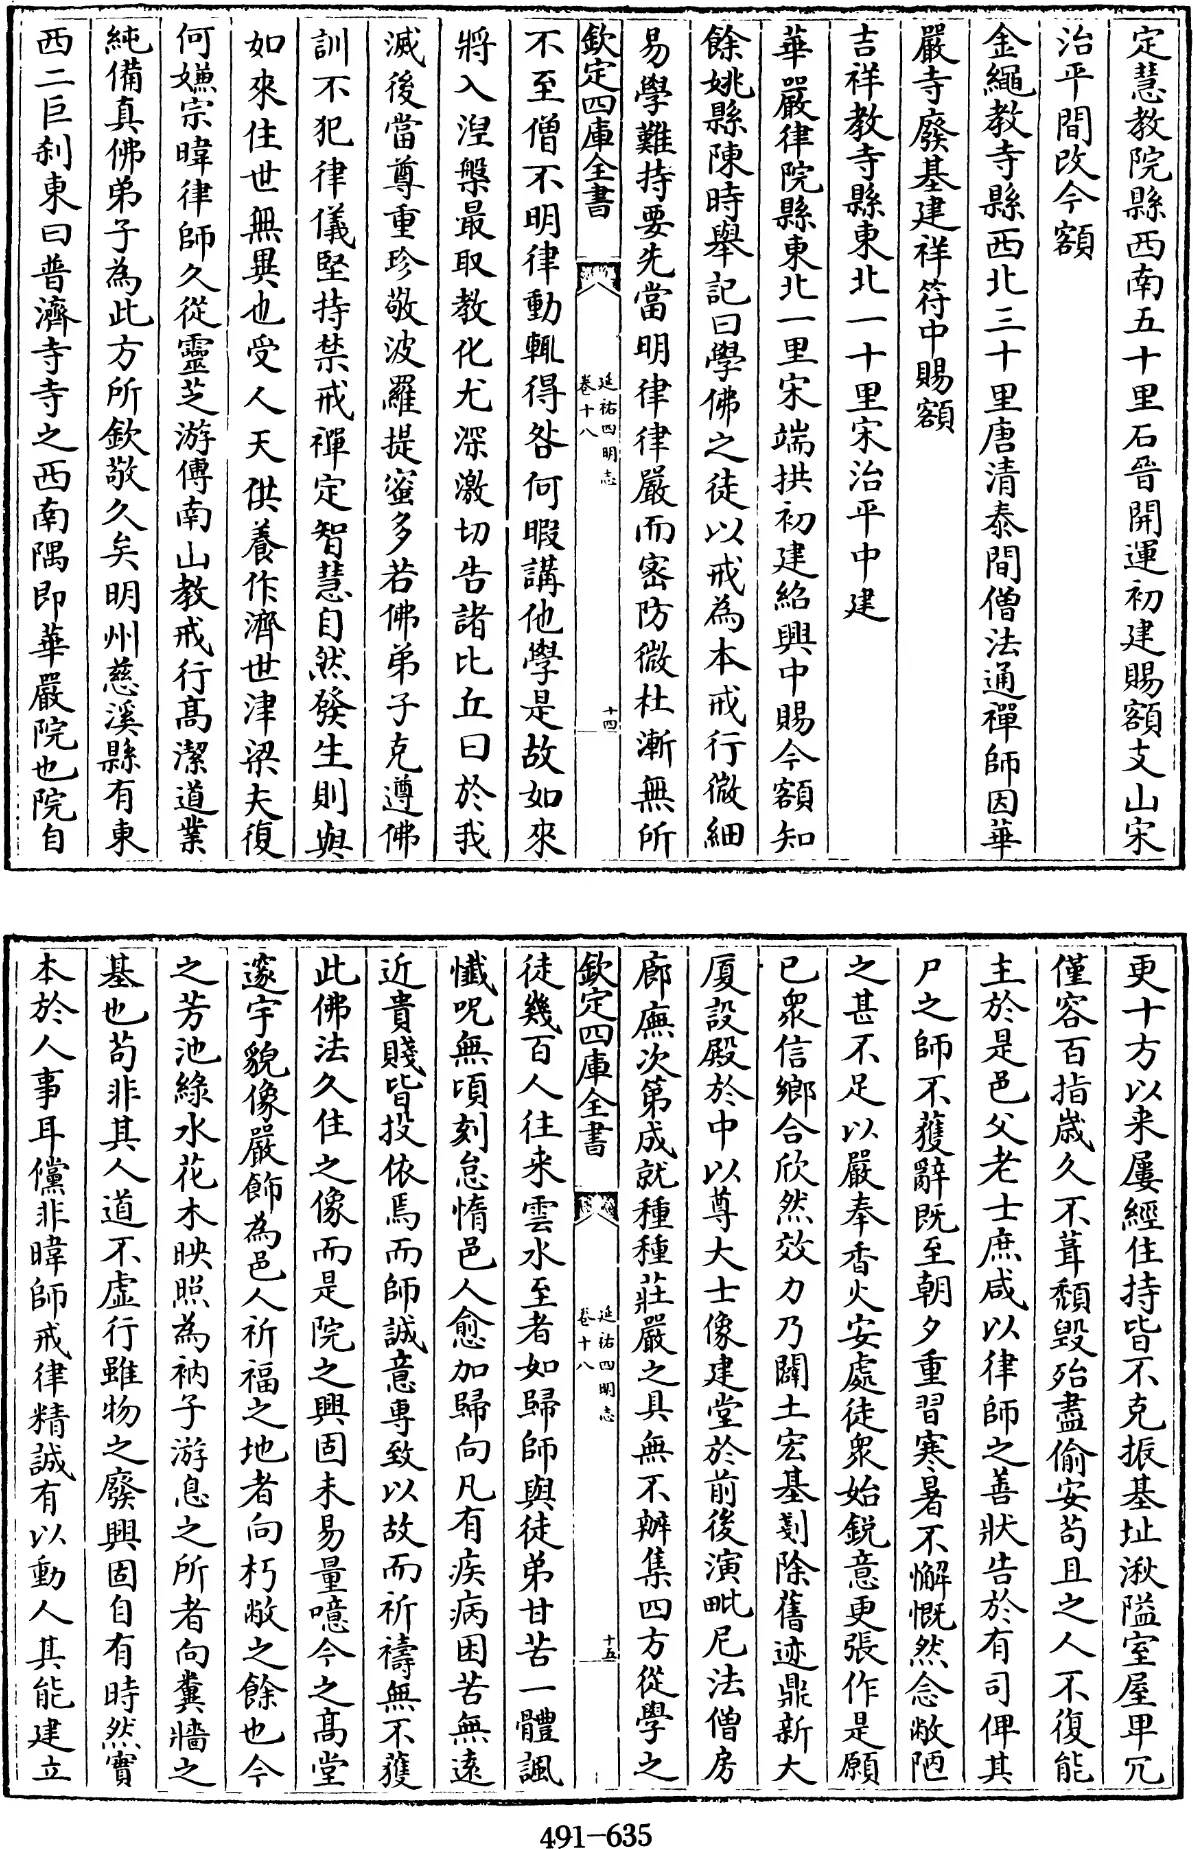 定慧教院縣西南五十里石晉開運初建賜額支山宋
治平間改今額
金繩教寺縣西北三十里唐清泰間僧法通禪師因華
嚴寺廢基建祥符中賜額
吉祥教寺縣東北一十里宋治平中建
華嚴律院縣東北一里宋端拱初建紹興中賜今額知
餘姚縣陳時舉記曰學佛之徒以戒為本戒行微細
易學難持要先當明律律嚴而密防微杜漸無所
欽定四庫全書
延祐四明志
卷十八
十四
不至僧不明律動輒得咎何暇講他學是故如來
將入涅槃最取教化尤深激切告諸比丘曰於我
滅後當尊重珍敬波羅提蜜多若佛弟子克遵佛
訓不犯律儀堅持禁戒禪定智慧自然發生則與
如來住世無異也受人天供養作濟世津梁夫復
何嫌宗暐律師久從靈芝游傳南山教戒行高潔道業
純備真佛弟子為此方所欽敬久矣明州慈溪縣有東
西二巨刹東曰普濟寺寺之西南隅即華嚴院也院自
更十方以来屢經住持皆不克振基址湫隘室屋卑冗
僅容百指歲久不葺頽毀殆盡偷安苟且之人不復能
主於是邑父老士庶咸以律師之善狀告於有司俾其
尸之師不獲辭既至朝夕重習寒暑不懈慨然念敝陋
之甚不足以嚴奉香火安處徒衆始鋭意更張作是願
已衆信鄉合欣然效力乃闢土宏基剗除舊迹鼎新大
厦設殿於中以尊大士像建堂於前後演毗尼法僧房
廊廡次第成就種種莊嚴之具無不辦集四方從學之
欽定四庫全書
延祐四明志
卷十八
十五
徒幾百人往来雲水至者如歸師與徒弟甘苦一體諷
懺呪無頃刻怠惰邑人愈加歸向凡有疾病困苦無遠
近貴賤皆投依焉而師誠意專致以故而祈禱無不獲
此佛法久住之像而是院之興固未易量噫今之高堂
邃宇貌像嚴飾為邑人祈福之地者向朽敝之餘也今
之芳池綠水花木映照為衲子游息之所者向糞牆之
基也苟非其人道不虛行雖物之廢興固自有時然實
本於人事耳儻非暐師戒律精誠有以動人其能建立
491-635